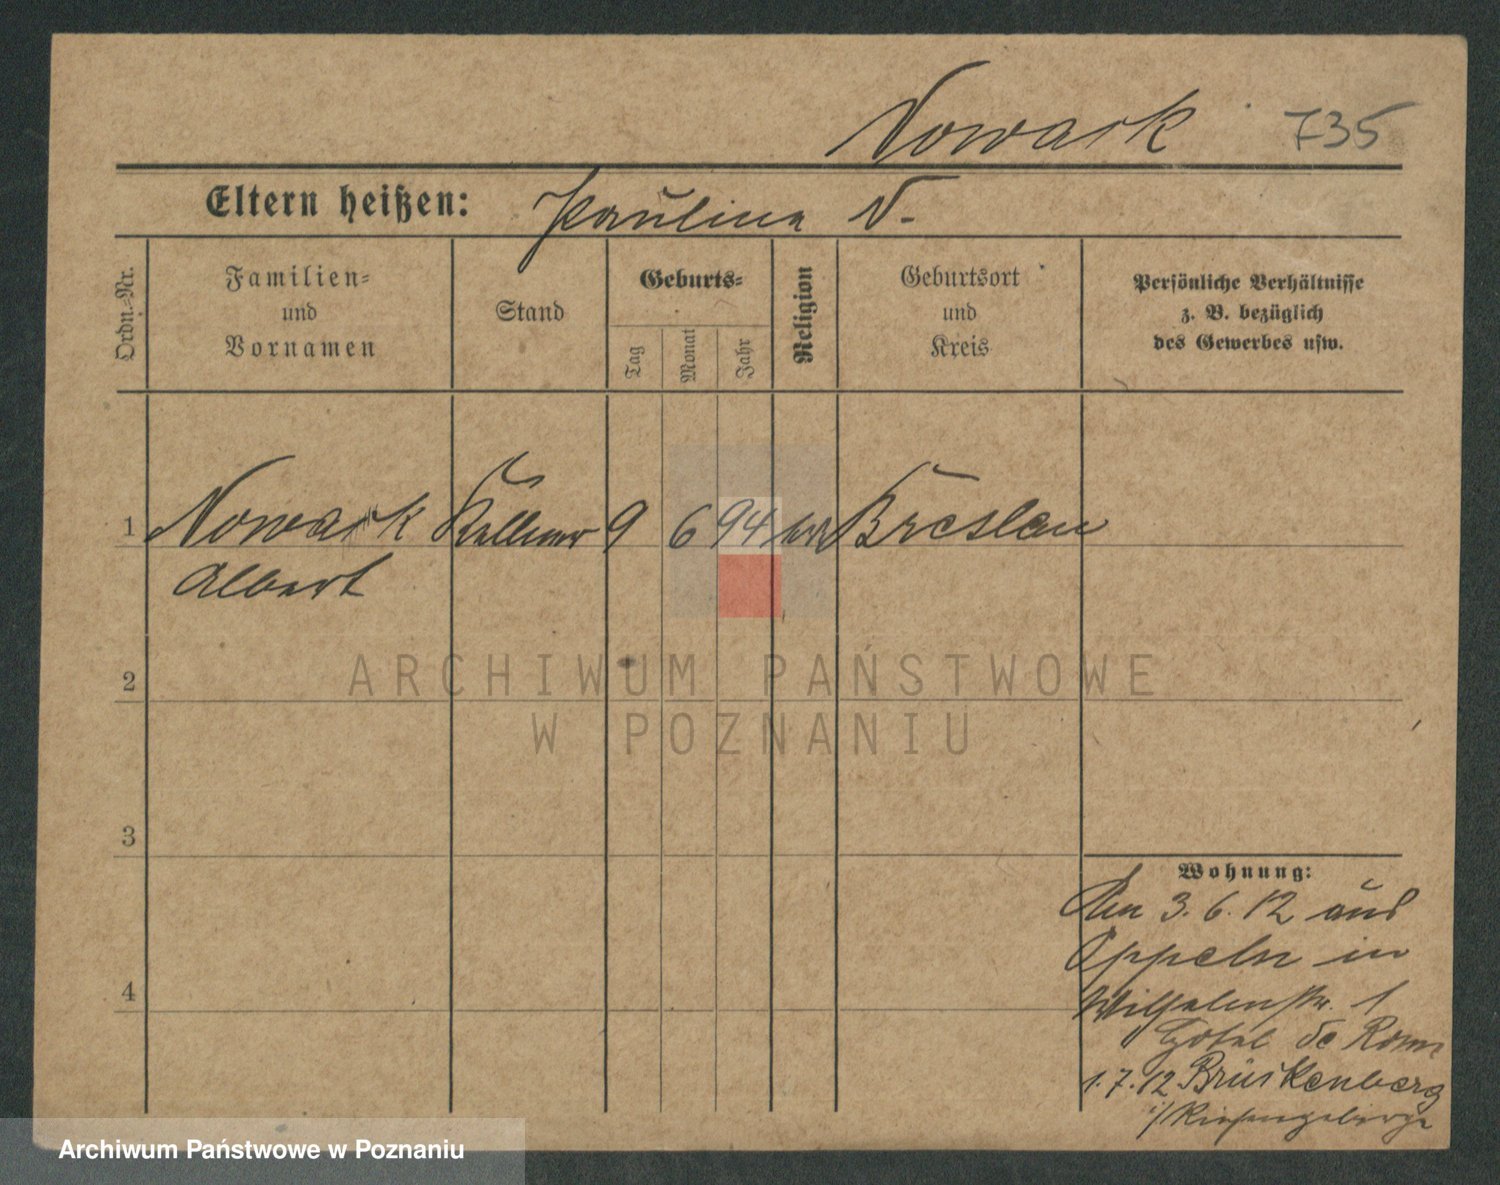 Nowack 735
Eltern heißen: Paulina N.
Ordn.-Nr.
Familien-
und
Vornamen
Stand
Geburts-
Tag
Monat
Jahr
Religion
Geburtsort
und
Kreis
Persönliche Verhältnisse
z. B. bezüglich
des Gewerbes usw.
1 Nowack Kellner 9 6 94 Breslau
Albert
2
3
4
Wohnung:
Den 3.6.12 aus
Oppeln in
Wilhelmstr. 1
Hotel de Rome
1.7.12 Brückenberg
i/Riesengebirge
ARCHIWUM PAŃSTWOWE
W POZNANIU
Archiwum Państwowe w Poznaniu